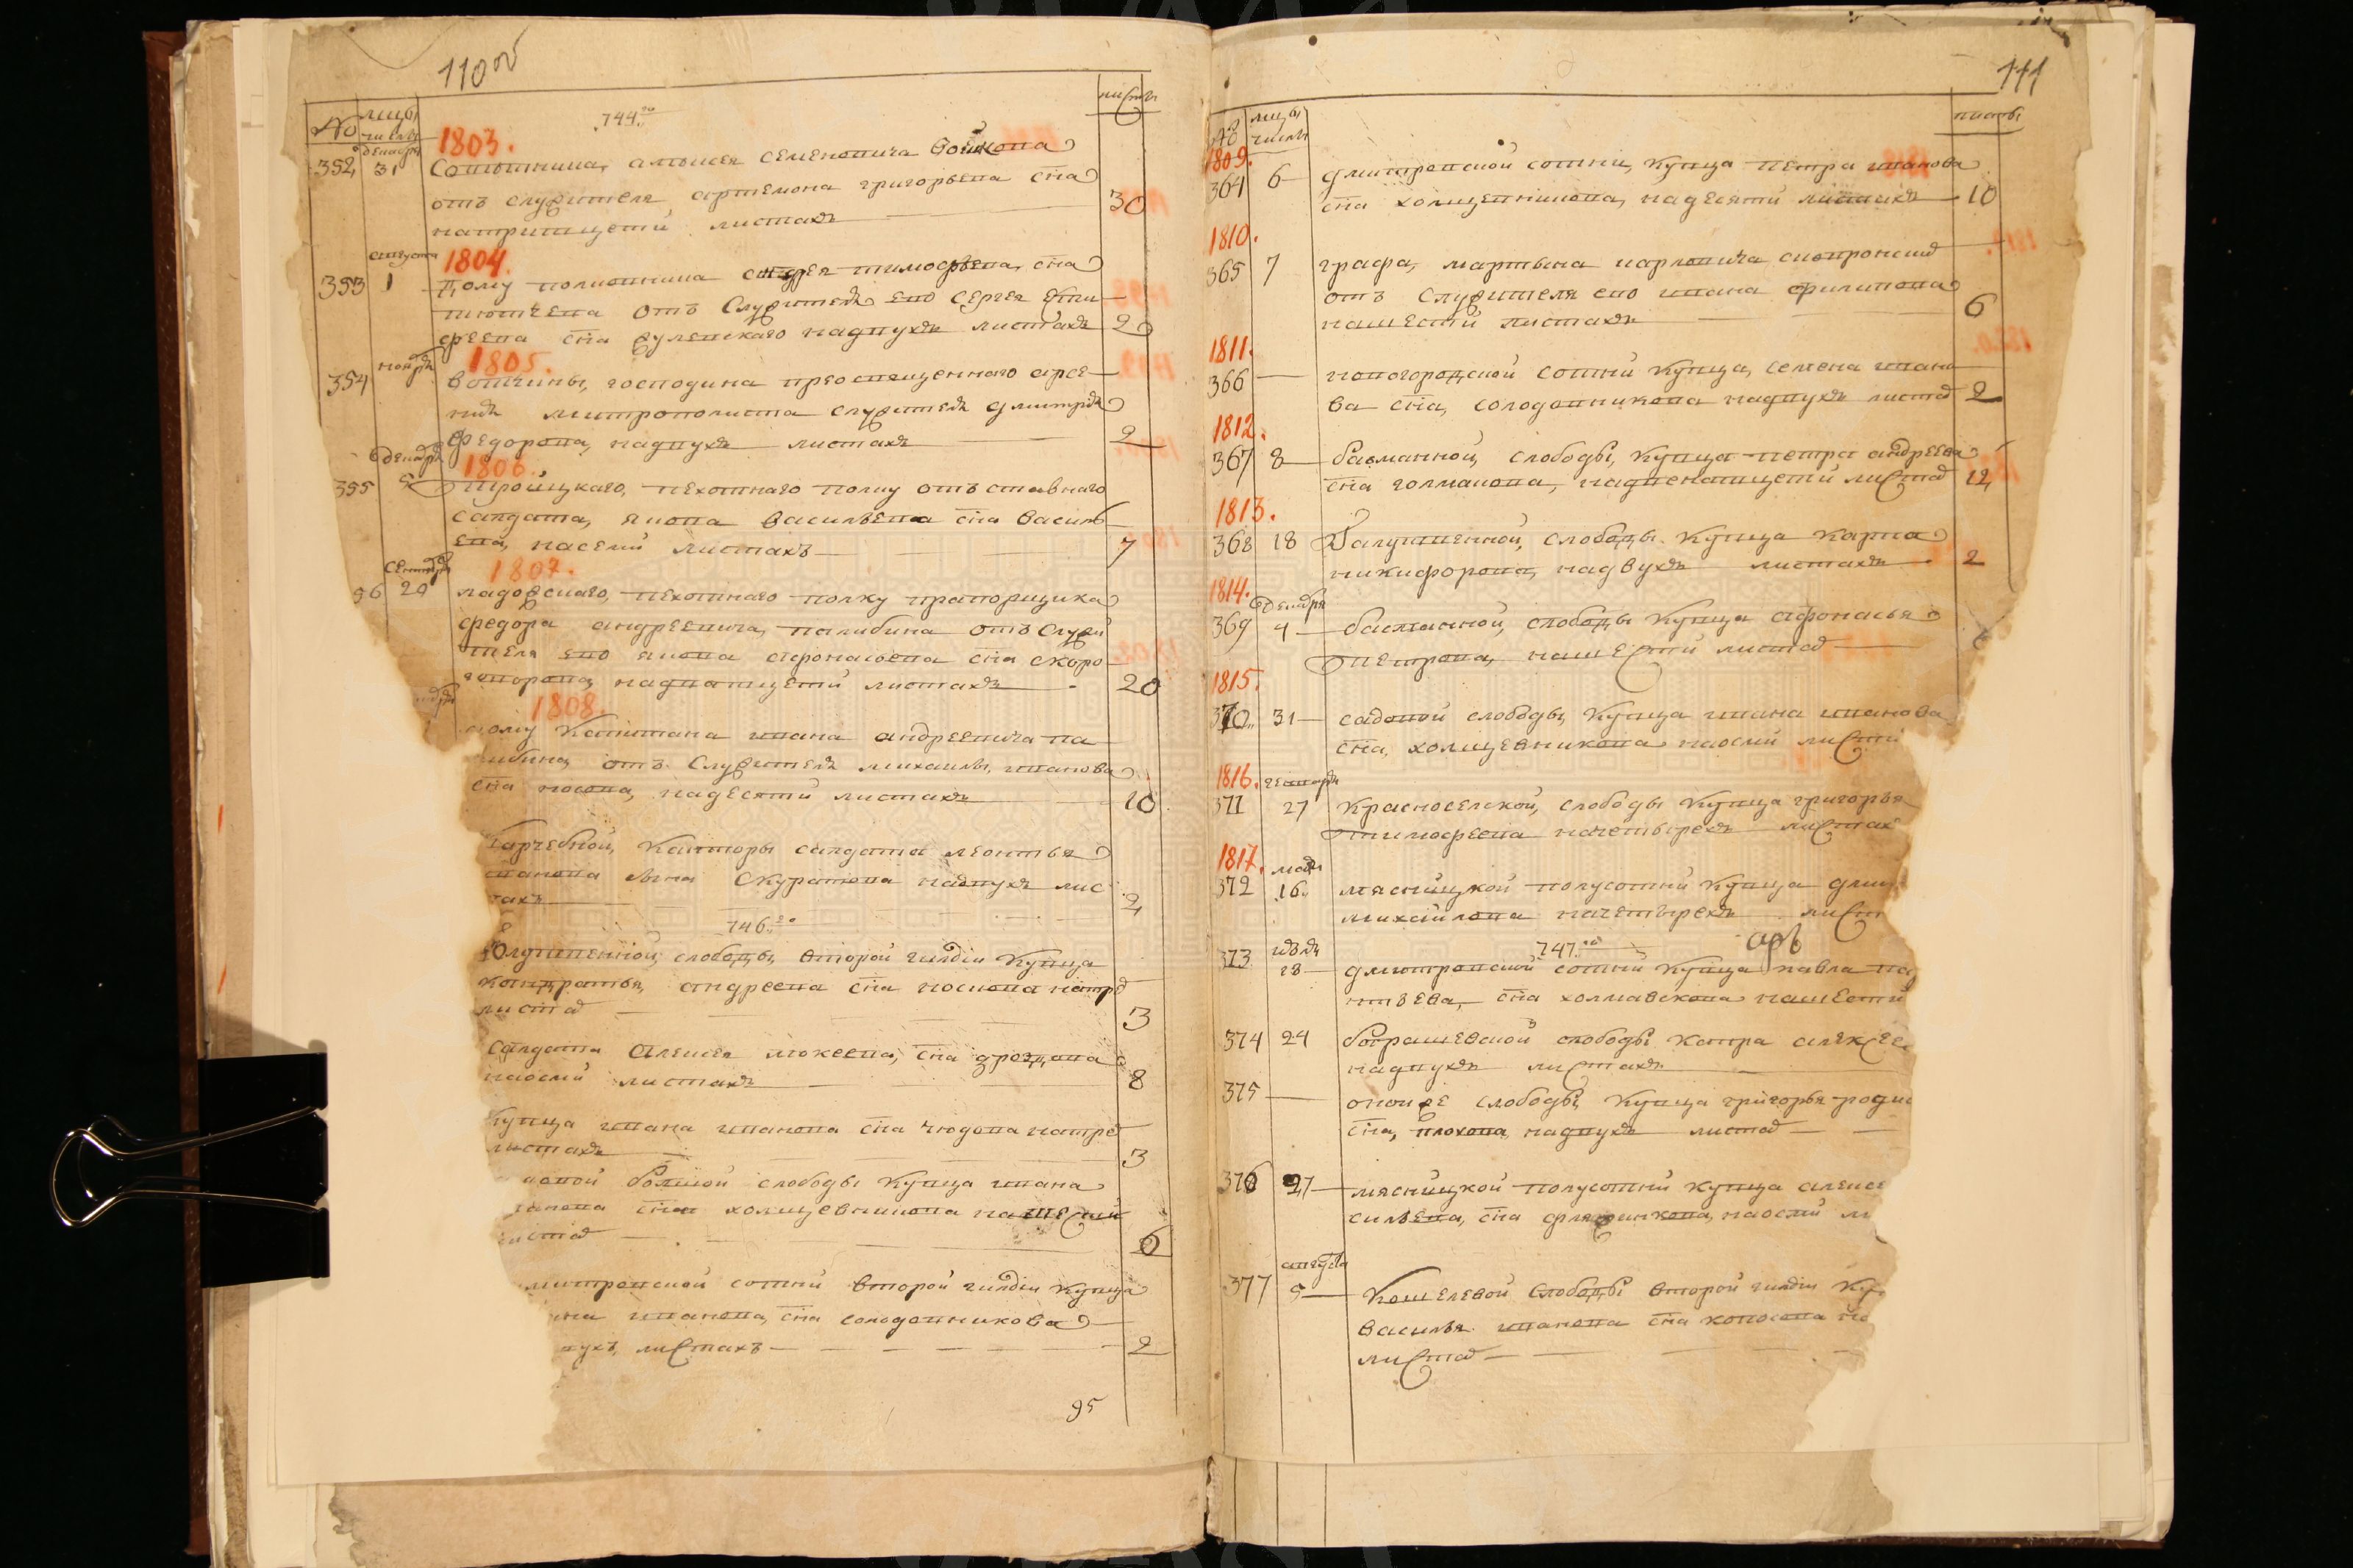 110 об
№ мцы числы листы
744 го
декабря
1803.
352 31 Сотютника, алексея семеновича воейкова
отъ служителя артемона григорьева сна
натритцети листахъ 30
августа
1804.
353 1 Дому полковника андрея тимофеева, сна
отъ Служителя ево Сергея
сна надвухъ листахъ 2
ноября
1805.
354 вотчины, господина преосвещенного арсе
ния митрополита служителя дмитрия
федорова, надвухъ листахъ 2
декабря
1806.
355 5 троицкаго, пехотнаго полку отъставнаго
салдата, якова васильева сна василь
ева, насеми листахъ 7
Сентября
1807.
56 20 ладожскаго, пехотнаго полку прапорщика
федора андреевича, палибина отъ Служи
теля ево якова афонасьева сна скоро
говорова, надватцети листахъ 20
1808.
дому Капитана ивана андреевича па
либина, отъ Служителя михаилы, иванова
сна носова, надесяти листахъ 10
Корчебной, Канторы салдата леонтья
иванова сына Скуратова надвухъ лис
тахъ 2
746 го
Алупшенной, слободы, второй гилдіи Купца
кондратья, андреева сна носкова натрехъ
листах 3
Салдата Алексея мокеева, сна дроздова
наосми листахъ 8
Купца ивана иванова сна чюдова натрех
листахъ 3
довой болшой слободы Купца ивана
иванова сна холщевникова нашести
листах 6
митровской сотни второй гилдіи Купца
ина иванова, сна солодовникова
вухъ, листахъ 2
95
111
№ мцы числы листы
1809.
364 6 дмитровской сотни, купца петра иванова
сна холщевникова, надесяти листахъ 10
1810.
365 7 графа, мартына карловича скавронских
отъ Служителя ево ивана филипова
нашести листахъ 6
1811.
366 новогородской сотни Купца, семена ивано
ва сна, солодовникова надвухъ листах 2
1812.
367 8 басманной, слободы, Купца петра андреева
сна голманова, надвенатцети листах 12
1813.
368 18 Галушенной, слободы Купца карпа
никифорова, надвухъ листахъ 2
1814.
декабря
369 4 басманной, слободы Купца афонасья
петрова, нашести листах
1815.
370 31 садовой слободы, Купца ивана иванова
сна, холщевникова наосми листах
1816. генваря
371 27 Красноселской, слободы Купца григорья
тимофеева начетырехъ листах
1817. маия
372 16 мясницкой полусотни Купца дми
михаилова начетырехъ лист
747 го
373 июля
18 дмитровской сотни Купца павла
сна нашести
374 24 слободы алексее
надвухъ листахъ
375 онойже слободы, Купца григорья роди
сна, плохова, надвухъ листах
376 27 мясницкой полусотни купца алексе
сильева, сна наосми ли
августа
377 5 Кошелевой Слободы второй гилдіи Куп
Василья иванова сна колосова на
листах